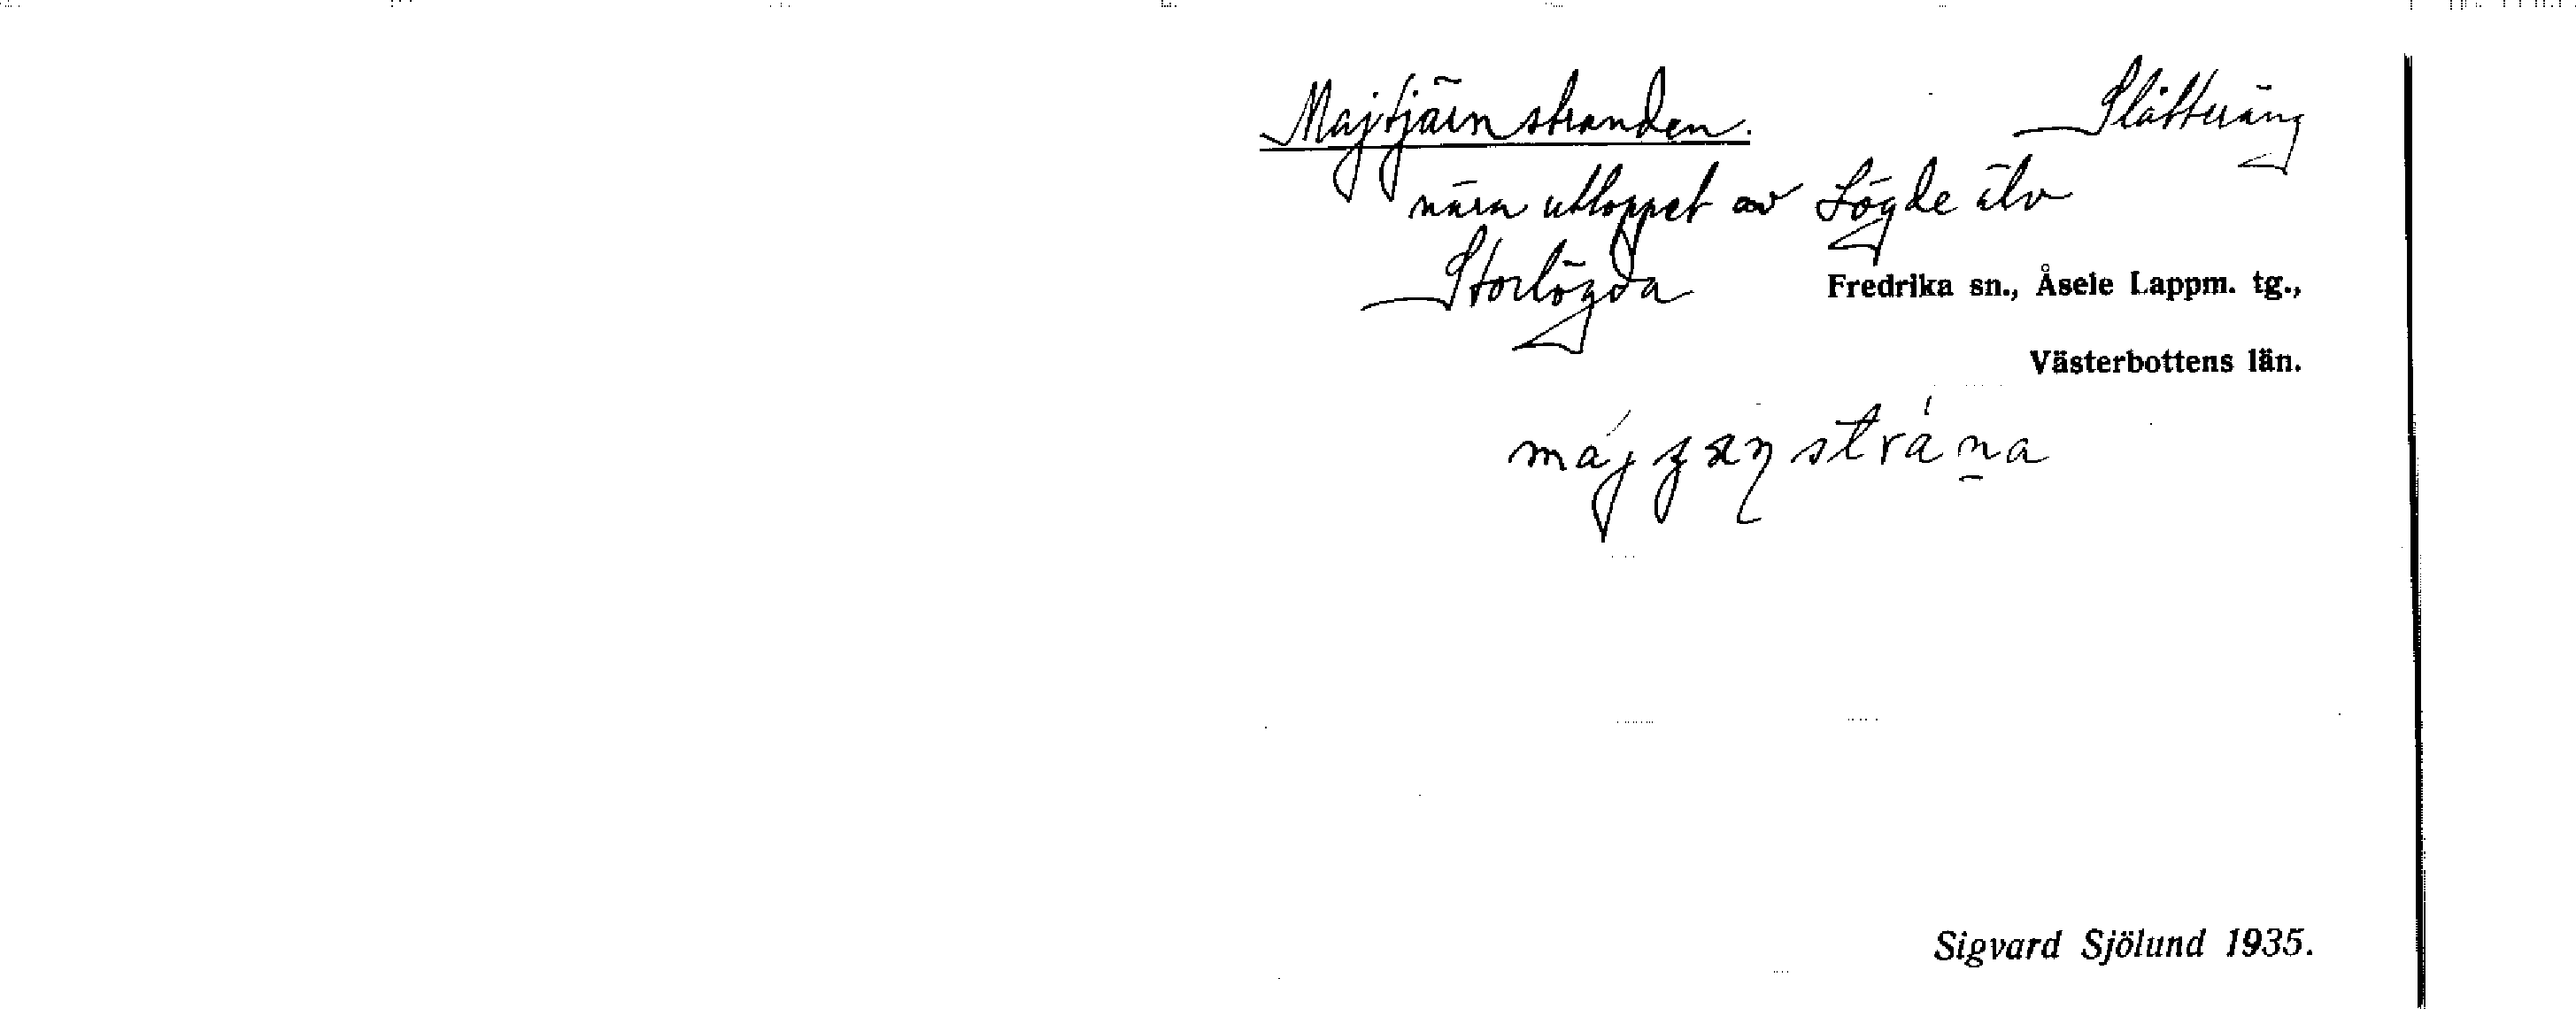 Majtjärnstranden. Slåtteräng
nära utloppet av Lögde älv
Storlögda Fredrika sn., Åsele Lappm. tg.,
Västerbottens län.
Sigvard Sjölund 1935.